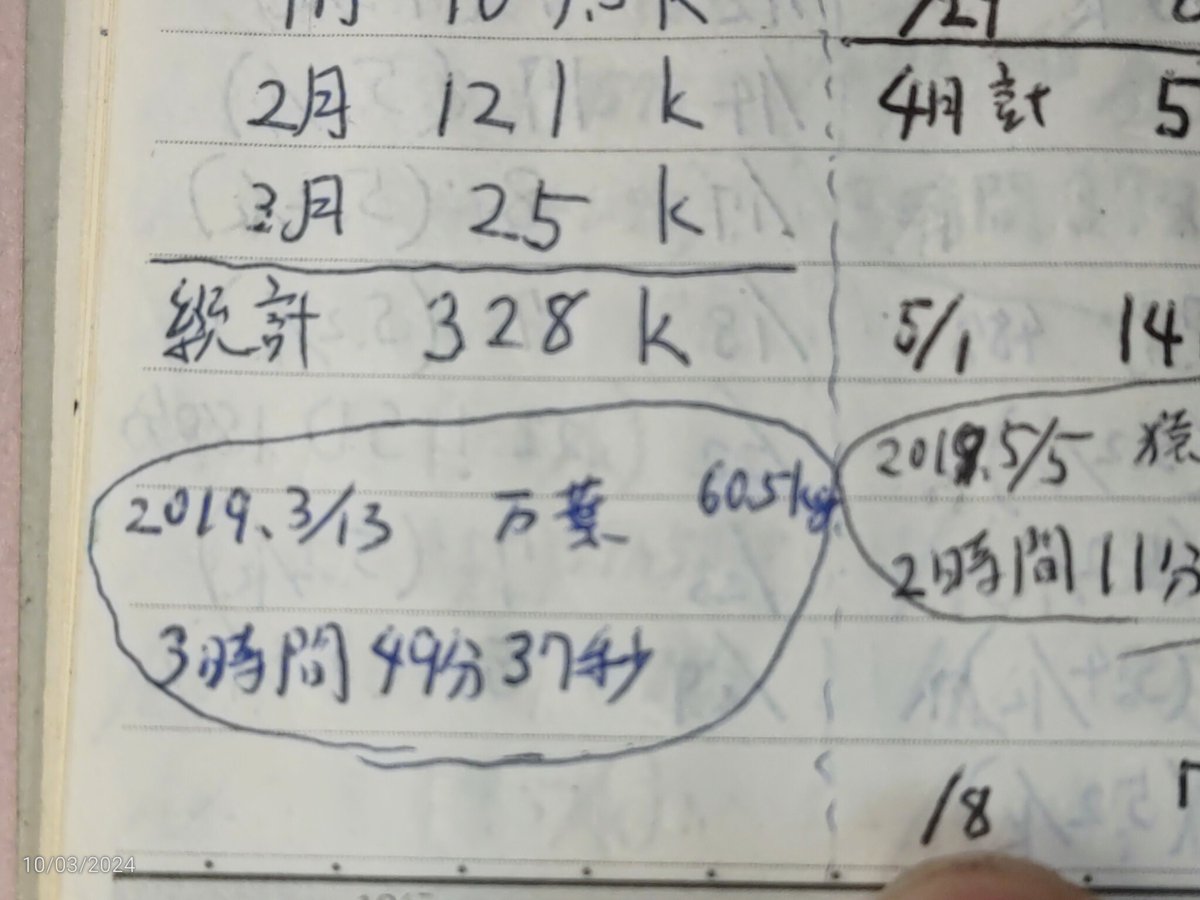 2月 121 k
3月 25 k
総計 328 k
2019.3/13 万葉 60.5kg
3時間49分37秒
4月計 5
5/1 14
2019.5/5 猿
2時間11分
/8
10/03/2024